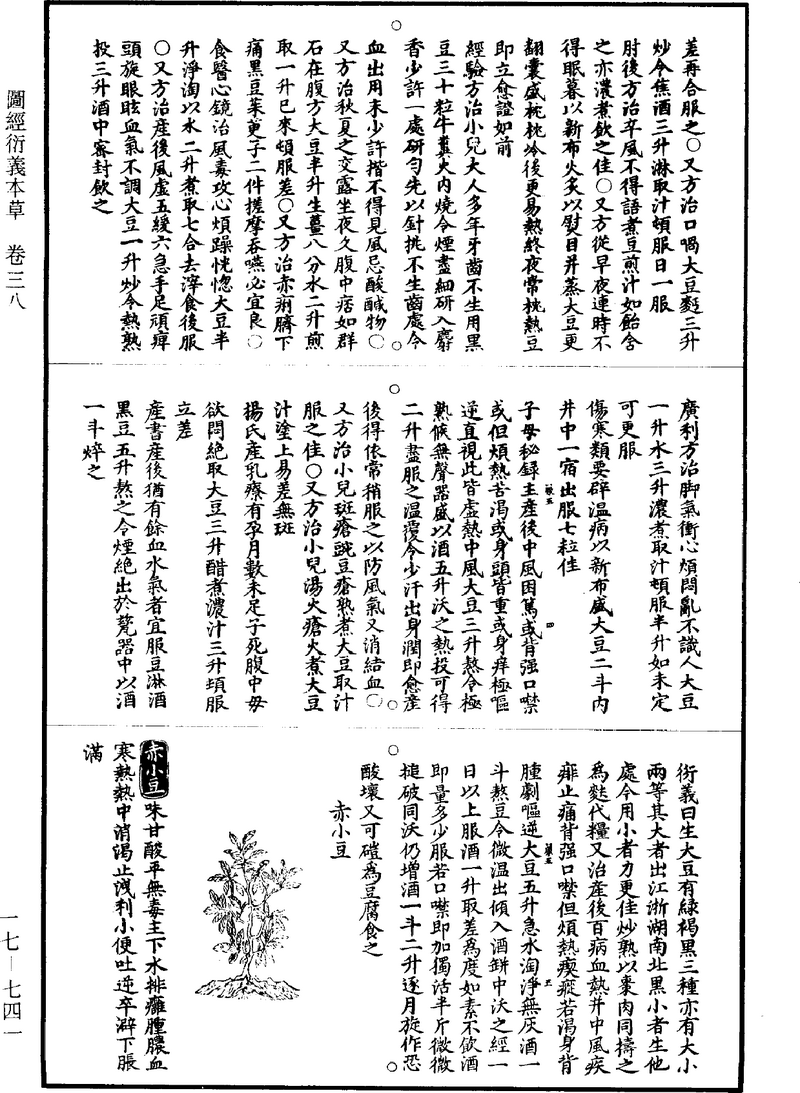 圖經衍義本草　卷三八
差再合服之○又方治口喎大豆麪三升
炒令焦酒三升淋取汁頓服日一服
肘後方治卒風不得語煮豆煎汁如飴含
之亦濃煮飲之佳○又方從早夜連時不
得眠暮以新布火炙以熨目并蒸大豆更
翻囊盛枕枕冷後更易熱終夜常枕熱豆
即立愈證如前
經驗方治小兒大人多年牙齒不生用黑
豆三十粒牛糞火內燒令煙盡細研入麝
香少許一處研勻先以針挑不生齒處令
血出用末少許揩不得見風忌酸醎物○
又方治秋夏之交露坐夜久腹中痞如群
石在腹方大豆半升生薑八分水二升煎
取一升已來頓服差○又方治赤痢臍下
痛黑豆茱萸子二件搓摩吞嚥必宜良○
食醫心鏡治風毒攻心煩躁恍惚大豆半
升淨淘以水二升煮取七合去滓食後服
○又方治產後風虛五緩六急手足頑痺
頭旋眼眩血氣不調大豆一升炒令熱熟
投三升酒中密封飲之
廣利方治脚氣衝心煩悶亂不識人大豆
一升水三升濃煮取汁頓服半升如未定
可更服
傷寒類要辟温病以新布盛大豆二斗內
井中一宿出服七粒佳
子母秘錄主產後中風困篤或背强口噤
或但煩熱苦渴或身頭皆重或身痒極嘔
逆直視此皆虛熱中風大豆三升熬令極
熟候無聲器盛以酒五升沃之熱投可得
二升盡服之温覆令少汗出身潤即愈產
後得依常稍服之以防風氣又消結血○
又方治小兒斑瘡豌豆瘡熟煮大豆取汁
服之佳○又方治小兒湯火瘡火煮大豆
汁塗上易差無斑
楊氏產乳療有孕月數未足子死腹中母
欲悶絕取大豆三升醋煮濃汁三升頓服
立差
產書產後猶有餘血水氣者宜服豆淋酒
黑豆五升熬之令煙絕出於甆器中以酒
一斗焠之
衍義曰生大豆有綠褐黑三種亦有大小
兩等其大者出江浙湖南北黑小者生他
處今用小者力更佳炒熟以棗肉同擣之
為麨代糧又治產後百病血熱并中風疾
痱止痛背强口噤但煩熱瘈瘲若渴身背
腫劇嘔逆大豆五升急水淘淨無灰酒一
斗熬豆令微温出傾入酒缾中沃之經一
日以上服酒一升取差為度如素不飲酒
即量多少服若口噤即加獨活半斤微微
搥破同沃仍增酒一斗二升逐月旋作恐
酸壞又可磑為豆腐食之
赤小豆
赤小豆味甘酸平無毒主下水排癰腫膿血
寒熱熱中消渴止洩利小便吐逆卒澼下脹
滿
一七—七四一